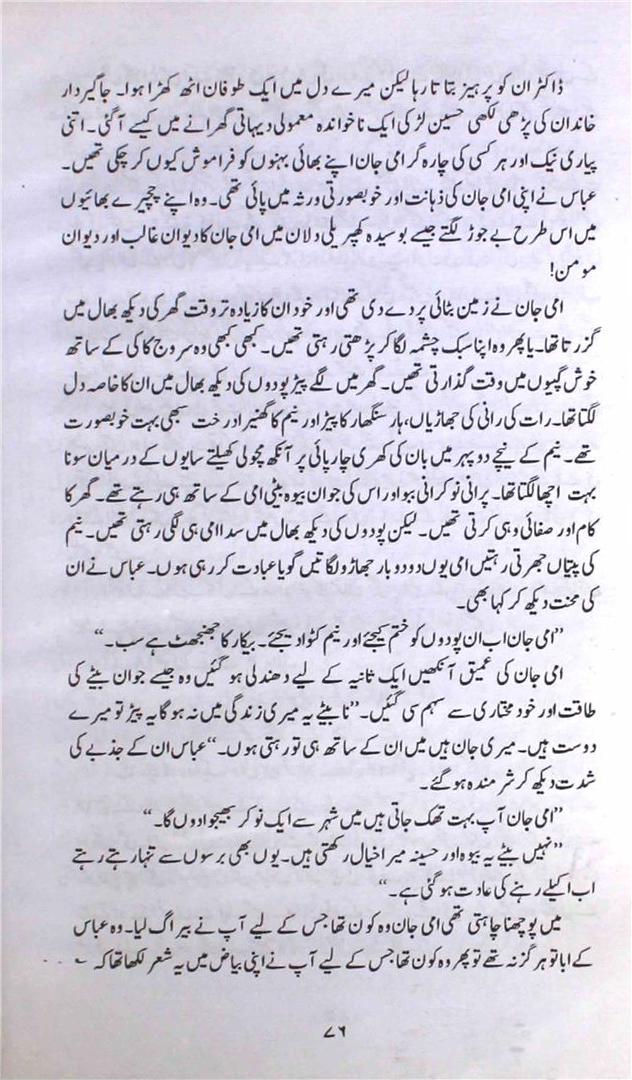 ڈاکٹر ان کو پرہیز بتاتا رہا لیکن میرے دل میں ایک طوفان اٹھ کھڑا ہوا۔ جاگیردار
خاندان کی پڑھی لکھی حسین لڑکی ایک ناخواندہ معمولی دیہاتی گھرانے میں کیسے آ گئی۔ اتنی
پیاری نیک اور ہر کسی کی چارہ گر امی جان اپنے بھائی بہنوں کو فراموش کیوں کر چکی تھیں۔
عباس نے اپنی امی جان کی ذہانت اور خوبصورتی ورثہ میں پائی تھی۔ وہ اپنے چچیرے بھائیوں
میں اس طرح بے جوڑ لگتے جیسے بوسیدہ کھپریلی دلان میں امی جان کا دیوان غالب اور دیوان
مومن!
امی جان نے زمین بٹائی پر دے دی تھی اور خود ان کا زیادہ تر وقت گھر کی دیکھ بھال میں
گزرتا تھا۔ یا پھر وہ اپنا سبک چشمہ لگا کر پڑھتی رہتی تھیں۔ کبھی کبھی وہ سروج کاکی کے ساتھ
خوش گپیوں میں وقت گذارتی تھیں۔ گھر میں لگے پیڑ پودوں کی دیکھ بھال میں ان کا خاصہ دل
لگتا تھا۔ رات کی رانی کی جھاڑیاں، ہار سنگھار کا پیڑ اور نیم کا گھنیرا درخت سبھی بہت خوبصورت
تھے۔ نیم کے نیچے دوپہر میں بان کی کھری چارپائی پر آنکھ مچولی کھیلتے سایوں کے درمیان سونا
بہت اچھا لگتا تھا۔ پرانی نوکرانی ببو اور اس کی جوان بیوہ بیٹی امی کے ساتھ ہی رہتے تھے۔ گھر کا
کام اور صفائی وہی کرتی تھیں۔ لیکن پودوں کی دیکھ بھال میں سدا امی ہی لگی رہتی تھیں۔ نیم
کی پتیاں جھرتی رہتیں امی یوں دو دو بار جھاڑو لگاتیں گویا عبادت کر رہی ہوں۔ عباس نے ان
کی محنت دیکھ کر کہا بھی۔
”امی جان اب ان پودوں کو ختم کیجئے اور نیم کٹوا دیجئے۔ بیکار کا جھنجھٹ ہے سب۔“
امی جان کی عمیق آنکھیں ایک ثانیہ کے لیے دھندلی ہو گئیں وہ جیسے جوان بیٹے کی
طاقت اور خود مختاری سے سہم سی گئیں۔ ”نا بیٹے یہ میری زندگی میں نہ ہو گا یہ پیڑ تو میرے
دوست ہیں۔ میری جان ہیں میں ان کے ساتھ ہی تو رہتی ہوں۔“ عباس ان کے جذبے کی
شدت دیکھ کر شرمندہ ہو گئے۔
”امی جان آپ بہت تھک جاتی ہیں میں شہر سے ایک نوکر بھیجوا دوں گا۔“
”نہیں بیٹے یہ بیوہ اور حسینہ میرا خیال رکھتی ہیں۔ یوں بھی برسوں سے تنہا رہتے رہتے
اب اکیلے رہنے کی عادت ہو گئی ہے۔“
میں پوچھنا چاہتی تھی امی جان وہ کون تھا جس کے لیے آپ نے بیراگ لیا۔ وہ عباس
کے ابا تو ہرگز نہ تھے تو پھر وہ کون تھا جس کے لیے آپ نے اپنی بیاض میں یہ شعر لکھا تھا کہ ۔۔
۷۶